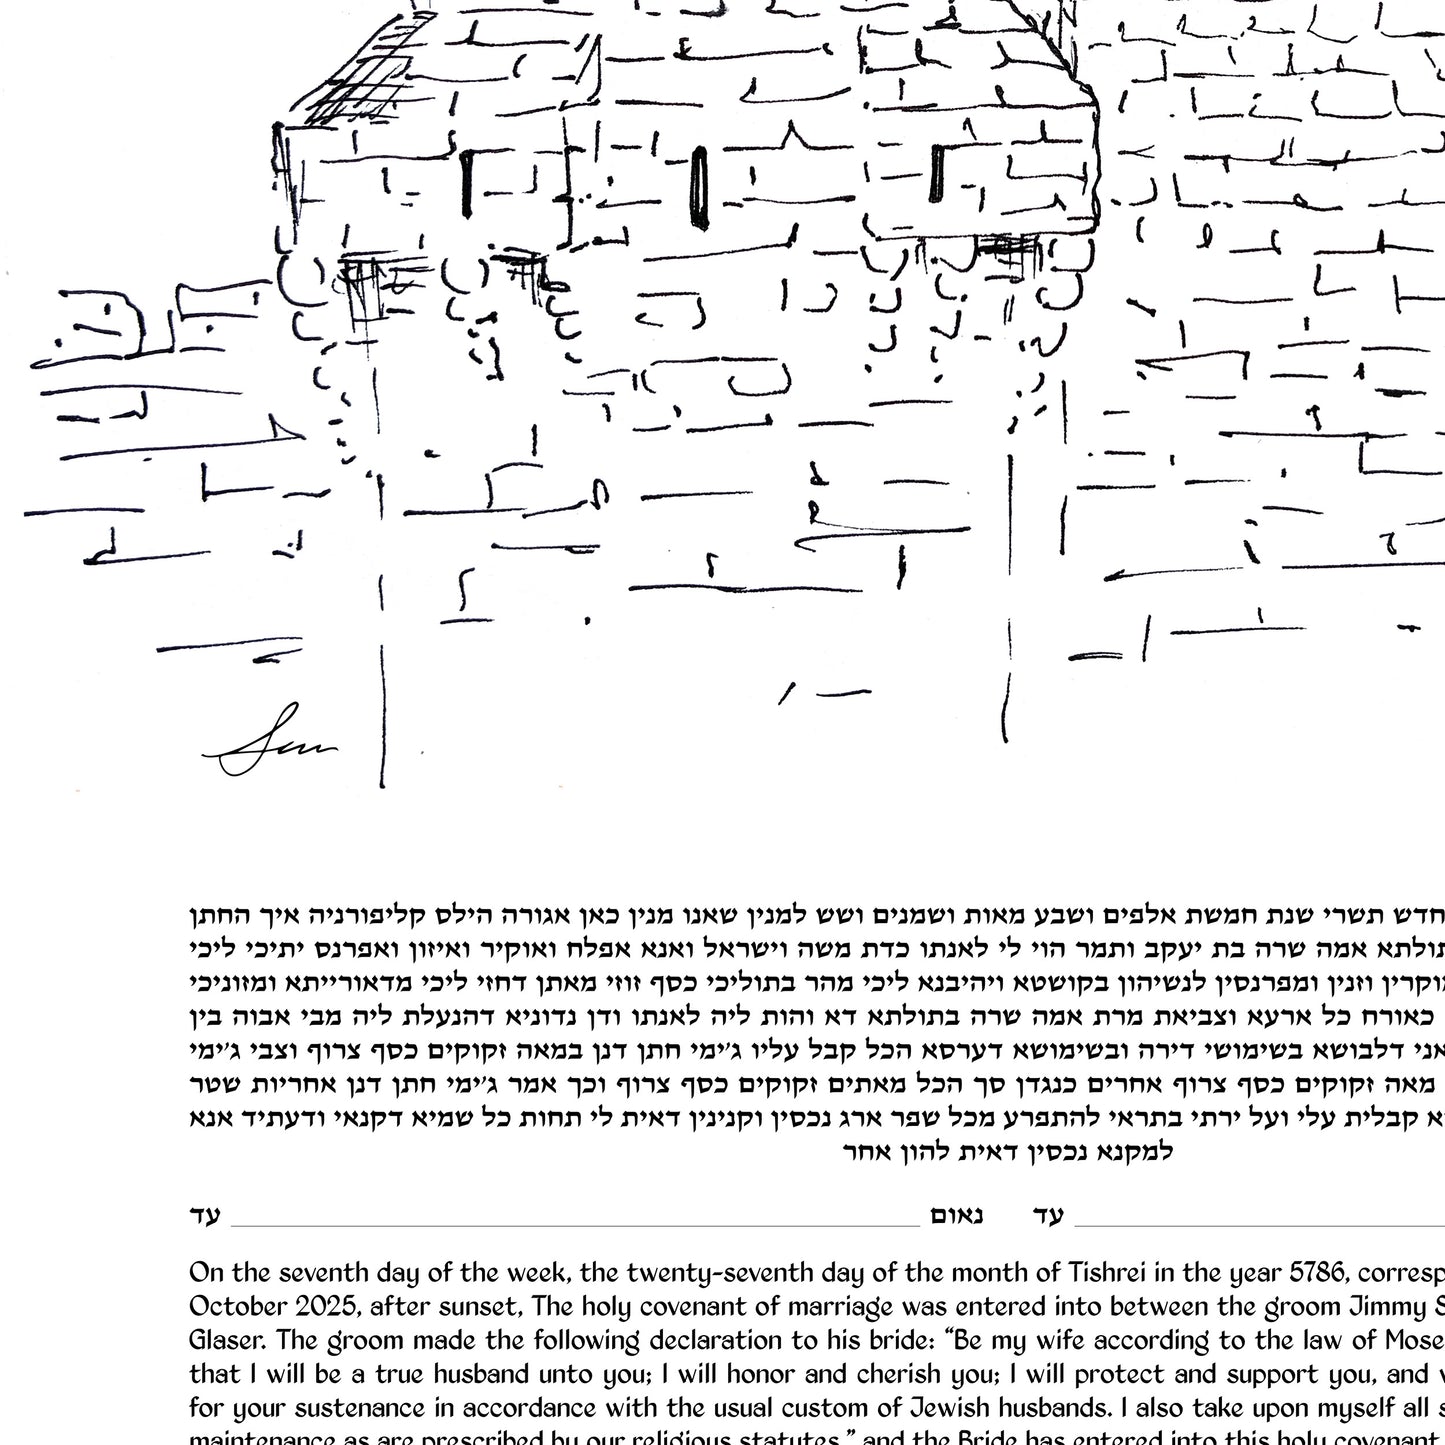 חדש תשרי שנת חמשת אלפים ושבע מאות ושמנים ושש למנין שאנו מנין כאן אגורה הילס קליפורניה איך החתן
אמה שרה בת יעקב ותמר הוי לי לאנתו כדת משה וישראל ואנא אפלח ואוקיר ואיזון ואפרנס יתיכי ליכי
וזנין ומפרנסין לנשיהון בקושטא ויהיבנא ליכי מהר בתוליכי כסף זוזי מאתן דחזי ליכי מדאורייתא ומזוניכי
כאורח כל ארעא וצביאת מרת אמה שרה בתולתא דא והות ליה לאנתו ודן נדוניא דהנעלת ליה מבי אבוה בין
דלבושא בשימושי דירה ובשימושא דערסא הכל קבל עליו ג׳ימי חתן דנן במאה זקוקים כסף צרוף וצבי ג׳ימי
מאה זקוקים כסף צרוף אחרים כנגדן סך הכל מאתים זקוקים כסף צרוף וכך אמר ג׳ימי חתן דנן אחריות שטר
קבלית עלי ועל ירתי בתראי להתפרע מכל שפר ארג נכסין וקנינין דאית לי תחות כל שמיא דקנאי ודעתיד אנא
למקנא נכסין דאית להון אחר
עד נאום עד
On the seventh day of the week, the twenty-seventh day of the month of Tishrei in the year 5786, corresp
October 2025, after sunset, The holy covenant of marriage was entered into between the groom Jimmy S
Glaser. The groom made the following declaration to his bride: “Be my wife according to the law of Mose
that I will be a true husband unto you; I will honor and cherish you; I will protect and support you, and
for your sustenance in accordance with the usual custom of Jewish husbands. I also take upon myself all s
maintenance as are prescribed by our religious statutes.” and the Bride has entered into this holy covenant